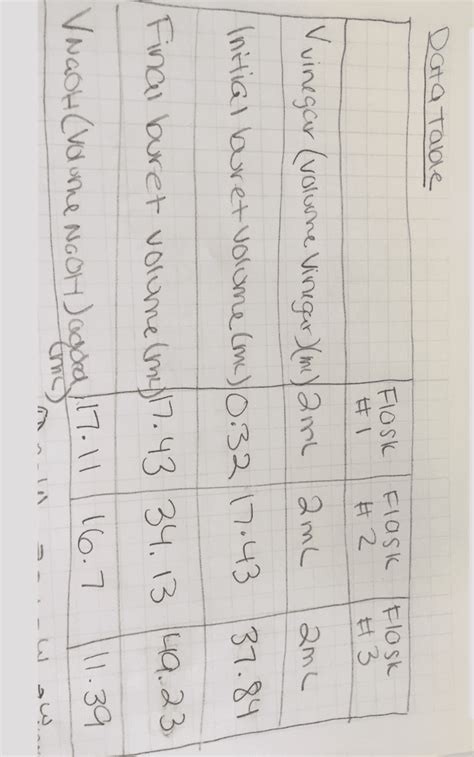 Data Table
Flask Flask Flask
#1 #2 #3
V vinegar (volume vinegar)(mL) 2mL 2mL 2mL
Initial buret volume (mL) 0.32 17.43 37.84
Final buret volume (mL) 17.43 34.13 49.23
VNaOH (Volume NaOH) added 17.11 16.7 11.39
(mL)